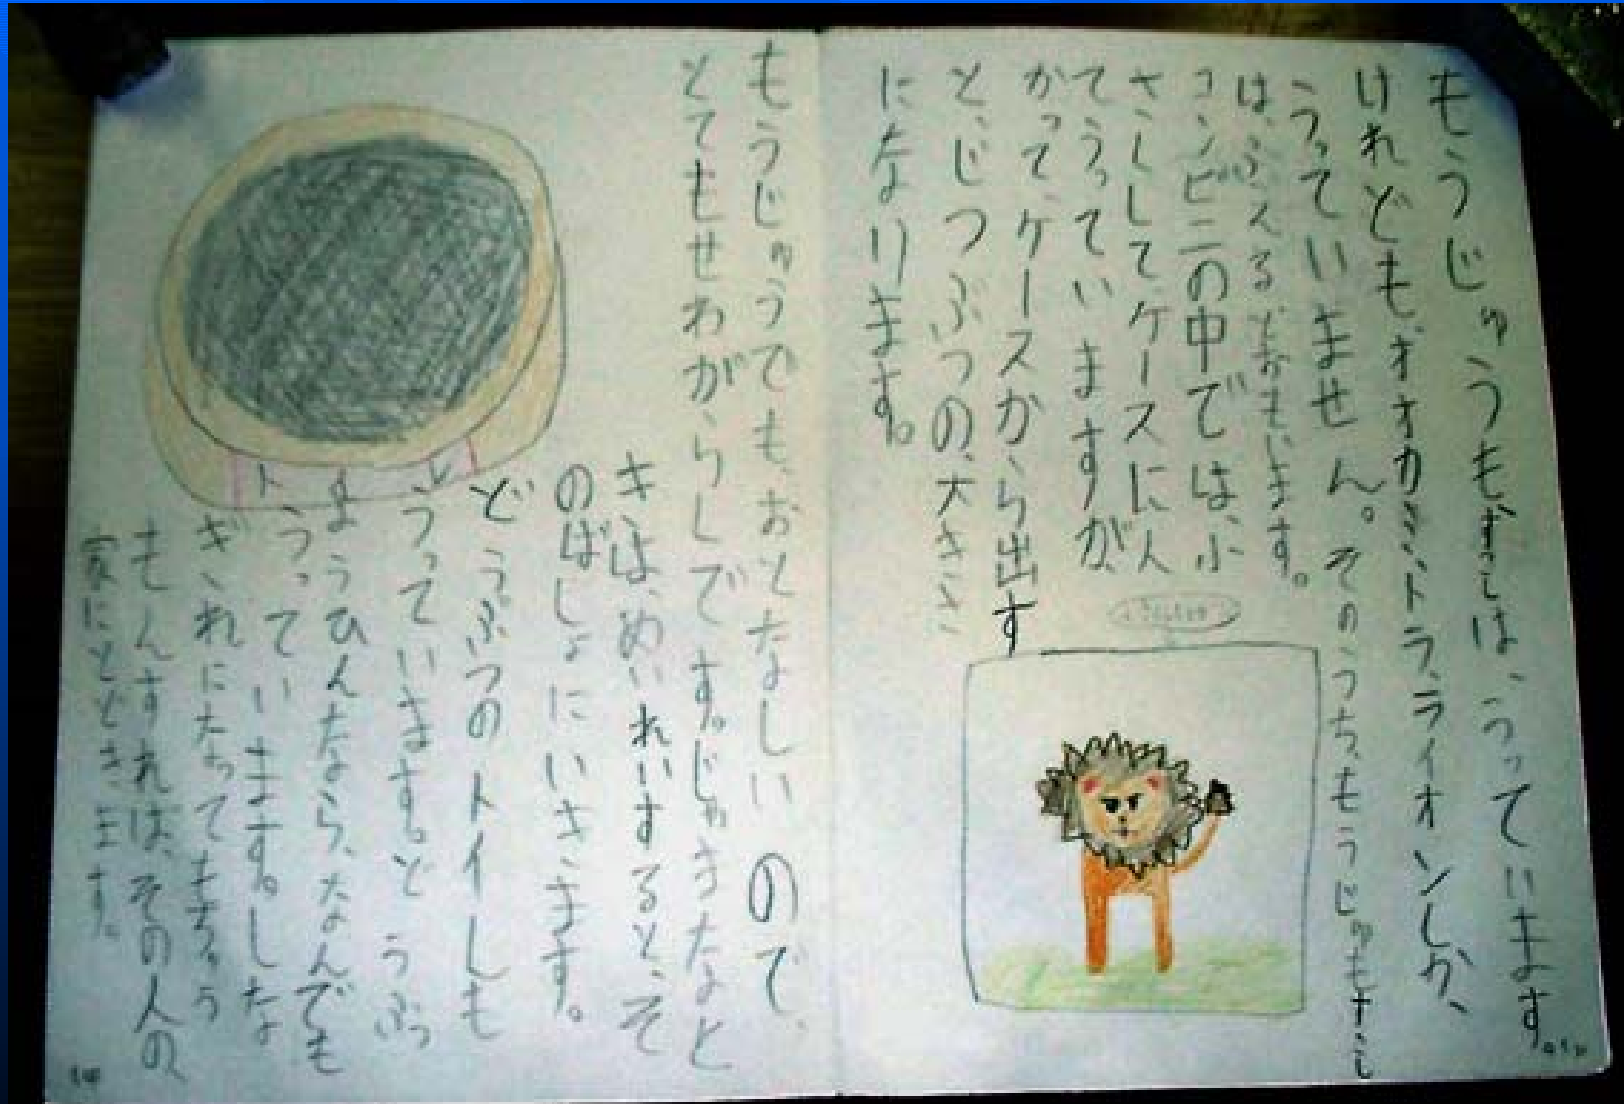 もうじゅうもすこしは、うっています。
けれどもオオカミ、トラ、ライオンしか、
うっていません。そのうち、もうじゅもすこし
は、ふえるとおもいます。
コンビニの中では、小
さくしてケースに入
てうっていますが、
かってケースから出す
と、じつぶつの、大きさ
になります。
もうじゅうでも、おとなしいので、
とてもせわがらくです。じゃまなと
きは、めいれいすると、そ
のばしょにいきます。
どうぶつのトイレも
うっています。どうぶつ
ようひんなら、なんでも
うっています。しな
ぎれになってもちゅう
もんすれば、その人の
家にとどきます。
14